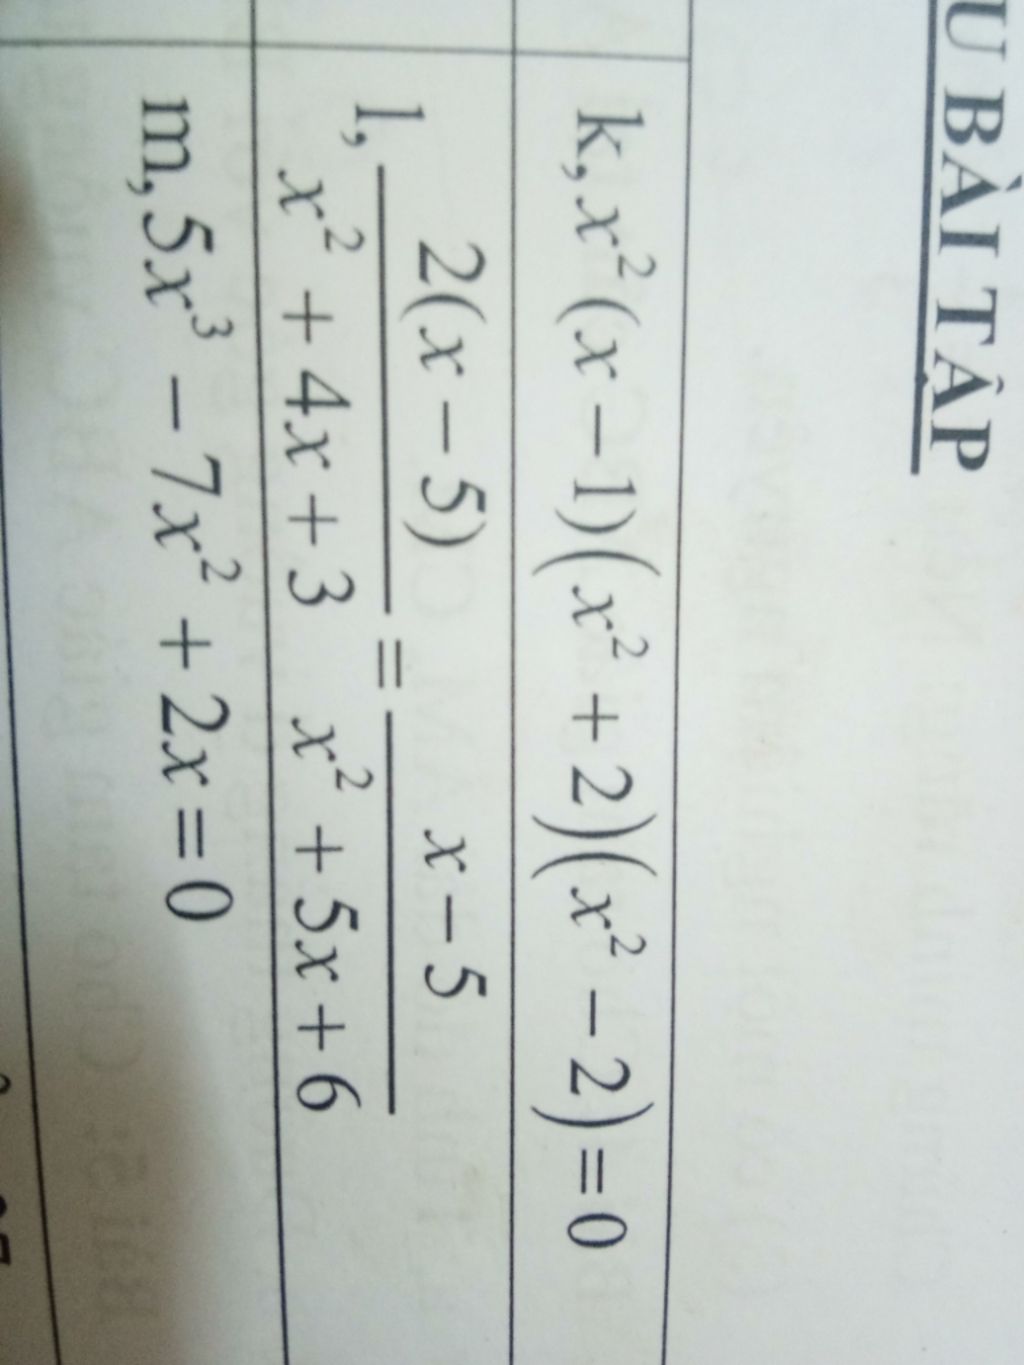 U BÀI TẬP
k, x²(x – 1)(x² + 2)(x² – 2) = 0
l, \frac{2(x – 5)}{x² + 4x + 3} = \frac{x – 5}{x² + 5x + 6}
m, 5x³ – 7x² + 2x = 0